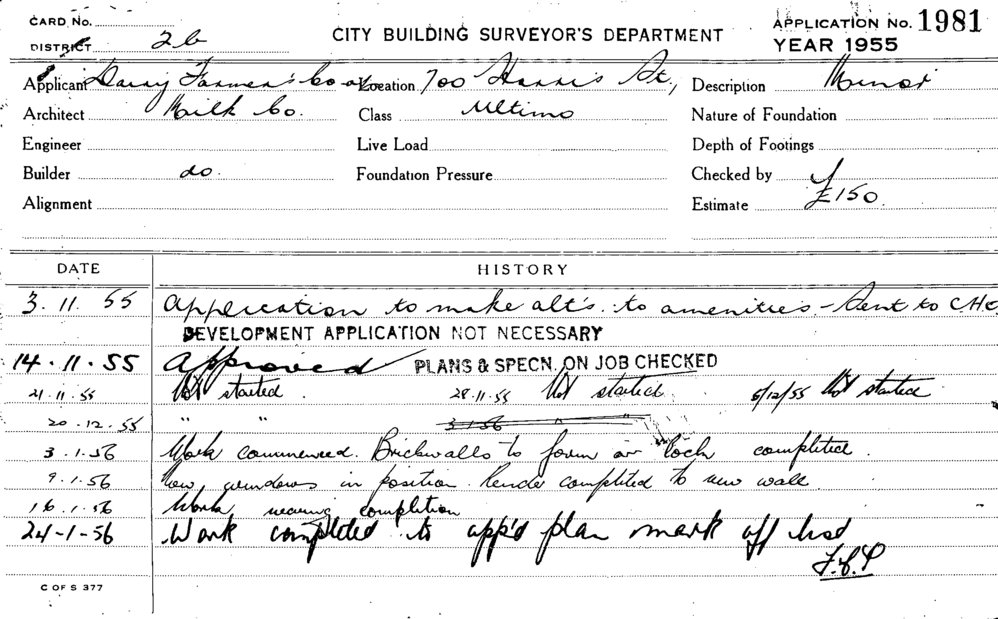 CARD No.
DISTRICT 2b
CITY BUILDING SURVEYOR'S DEPARTMENT
APPLICATION No. 1981
YEAR 1955
Applicant Dairy Farmer's Co-op Location 700 Harris St, Description Minor
Architect Milk Co. Class Ultimo Nature of Foundation
Engineer Live Load Depth of Footings
Builder do. Foundation Pressure Checked by
Alignment Estimate £150
DATE HISTORY
3.11.55 Application to make alt's. to amenities - Sent to C.H.O.
DEVELOPMENT APPLICATION NOT NECESSARY
14.11.55 Approved PLANS & SPECN. ON JOB CHECKED
21.11.55 Not started 28.11.55 Not started. 5/12/55 Not started
20.12.55 " " 3.1.56 "
3.1.56 Work commenced. Brickwalls to form air lock completed.
9.1.56 New windows in position. Render completed to new wall.
16.1.56 Work nearing completion
24-1-56 Work completed to app'd plan mark off
C OF S 377